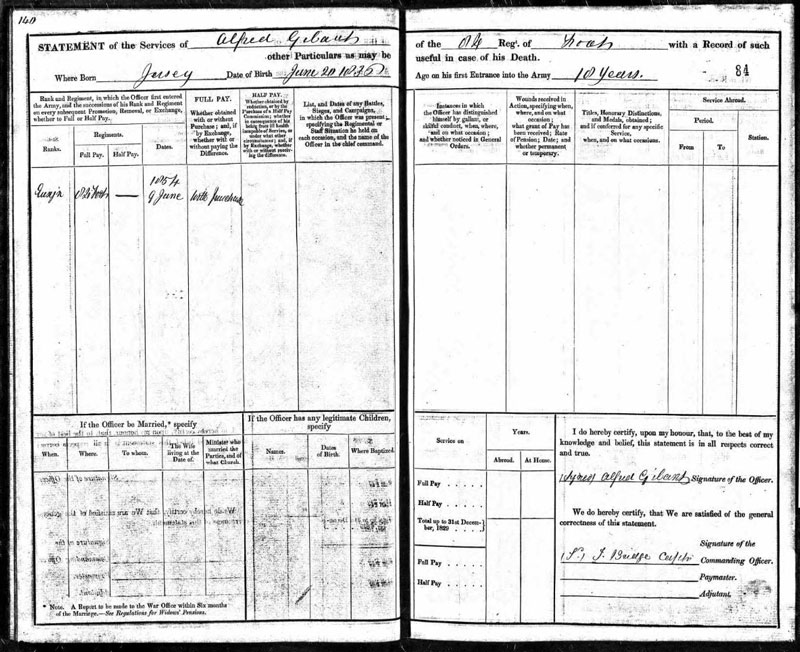 140
STATEMENT of the Services of Alfred Gibaut
other Particulars as may be
Where Born Jersey Date of Birth June 20 1836
Rank and Regiment, in which the Officer first entered
the Army, and the successions of his Rank and Regiment
on every subsequent Promotion, Removal, or Exchange,
whether to Full or Half Pay.
Ranks.
Regiments.
Full Pay.
Half Pay.
Dates.
FULL PAY.
Whether obtained
with or without
Purchase; and, if
by Exchange,
whether with or
without paying the
Difference.
HALF PAY.
Whether obtained by
reduction, or by the
Purchase of a Half Pay
Commission; whether
in consequence of his
being from ill health
incapable of Service, or
under what other
circumstances; and, if
by Exchange, whether
with or without receiv-
ing the difference.
List, and Dates of any Battles,
Sieges, and Campaigns,
in which the Officer was present;
specifying the Regimental or
Staff Situation he held on
each occasion, and the name of the
Officer in the chief command.
1854
Ensign 84 Foot — 9 June with Purchase
If the Officer be Married,* specify
When.
Where.
To whom.
The Wife
living at the
Date of.
Minister who
married the
Parties, and of
what Church.
If the Officer has any legitimate Children,
specify
Names.
Dates
of Birth.
Where Baptized.
* Note. A Report to be made to the War Office within Six months
of the Marriage.—See Regulations for Widows' Pensions.
of the 84 Regt. of Foot with a Record of such
useful in case of his Death.
Age on his first Entrance into the Army 18 Years.
84
Instances in which
the Officer has distinguished
himself by gallant, or
skilful conduct, when, where,
and on what occasion;
and whether noticed in General
Orders.
Wounds received in
Action, specifying when,
where, and on what
occasion;
what grant of Pay has
been received; Rate
of Pension; Date; and
whether permanent
or temporary.
Titles, Honorary Distinctions,
and Medals, obtained;
and if conferred for any specific
Service,
when, and on what occasions.
Service Abroad.
Period.
From
To
Station.
Service on
Years.
Abroad.
At Home.
Full Pay . . . . .
Half Pay . . . . .
Total up to 31st Decem-
ber, 1829 . . . . .
Full Pay . . . . .
Half Pay . . . . .
I do hereby certify, upon my honour, that, to the best of my
knowledge and belief, this statement is in all respects correct
and true.
(Signed) Alfred Gibaut Signature of the Officer.
We do hereby certify, that We are satisfied of the general
correctness of this statement.
Signature of the
Commanding Officer.
Paymaster.
Adjutant.